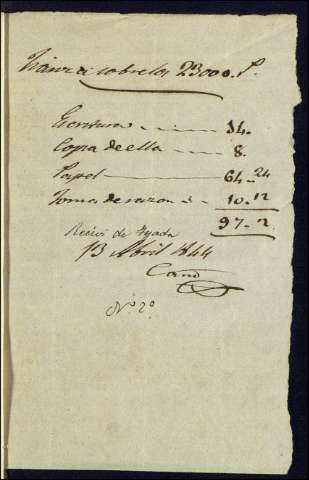 Fianza sobre los 23000. r.ˢ
Escritura 14.
Copia de ella 8.
Papel 64-24
Toma de razon 10.12
97-2
Recivi de Tejada
13 Abril 1844
Cano
N.º 2º